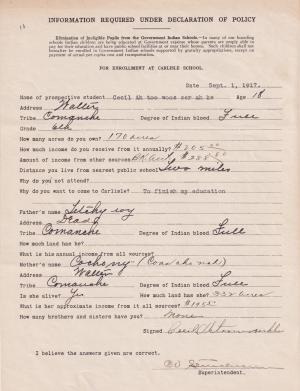 INFORMATION REQUIRED UNDER DECLARATION OF POLICY
Elimination of Ineligible Pupils from the Government Indian Schools.—In many of our boarding
schools Indian children are being educated at Government expense whose parents are amply able to
pay for their education and have public school facilities at or near their homes. Such children shall not
hereafter be enrolled in Government Indian schools supported by gratuity appropriations, except on
payment of actual per capita cost and transportation.
FOR ENROLLMENT AT CARLISLE SCHOOL.
Date Sept. 1, 1917.
Name of prospective student Cecil Ah too woos ser ah ke Age 18
Address Walters
Tribe Comanche Degree of Indian blood Full
Grade 6th
How many acres do you own? 170 acres
How much income do you receive from it annually?
Amount of income from other sources
Distance you live from nearest public school Two miles
Why do you not attend?
Why do you want to come to Carlisle? To finish my education
Father's name
Address Dead
Tribe Comanche Degree of Indian blood Full
How much land has he?
What is his annual income from all sources?
Mother's name
Address Walters
Tribe Comanche Degree of Indian blood Full
Is she alive? Yes How much land has she? acres
What is her approximate income from it all sources?
How many brothers and sisters have you? None
Signed Cecil
I believe the answers given are correct.
Superintendent.